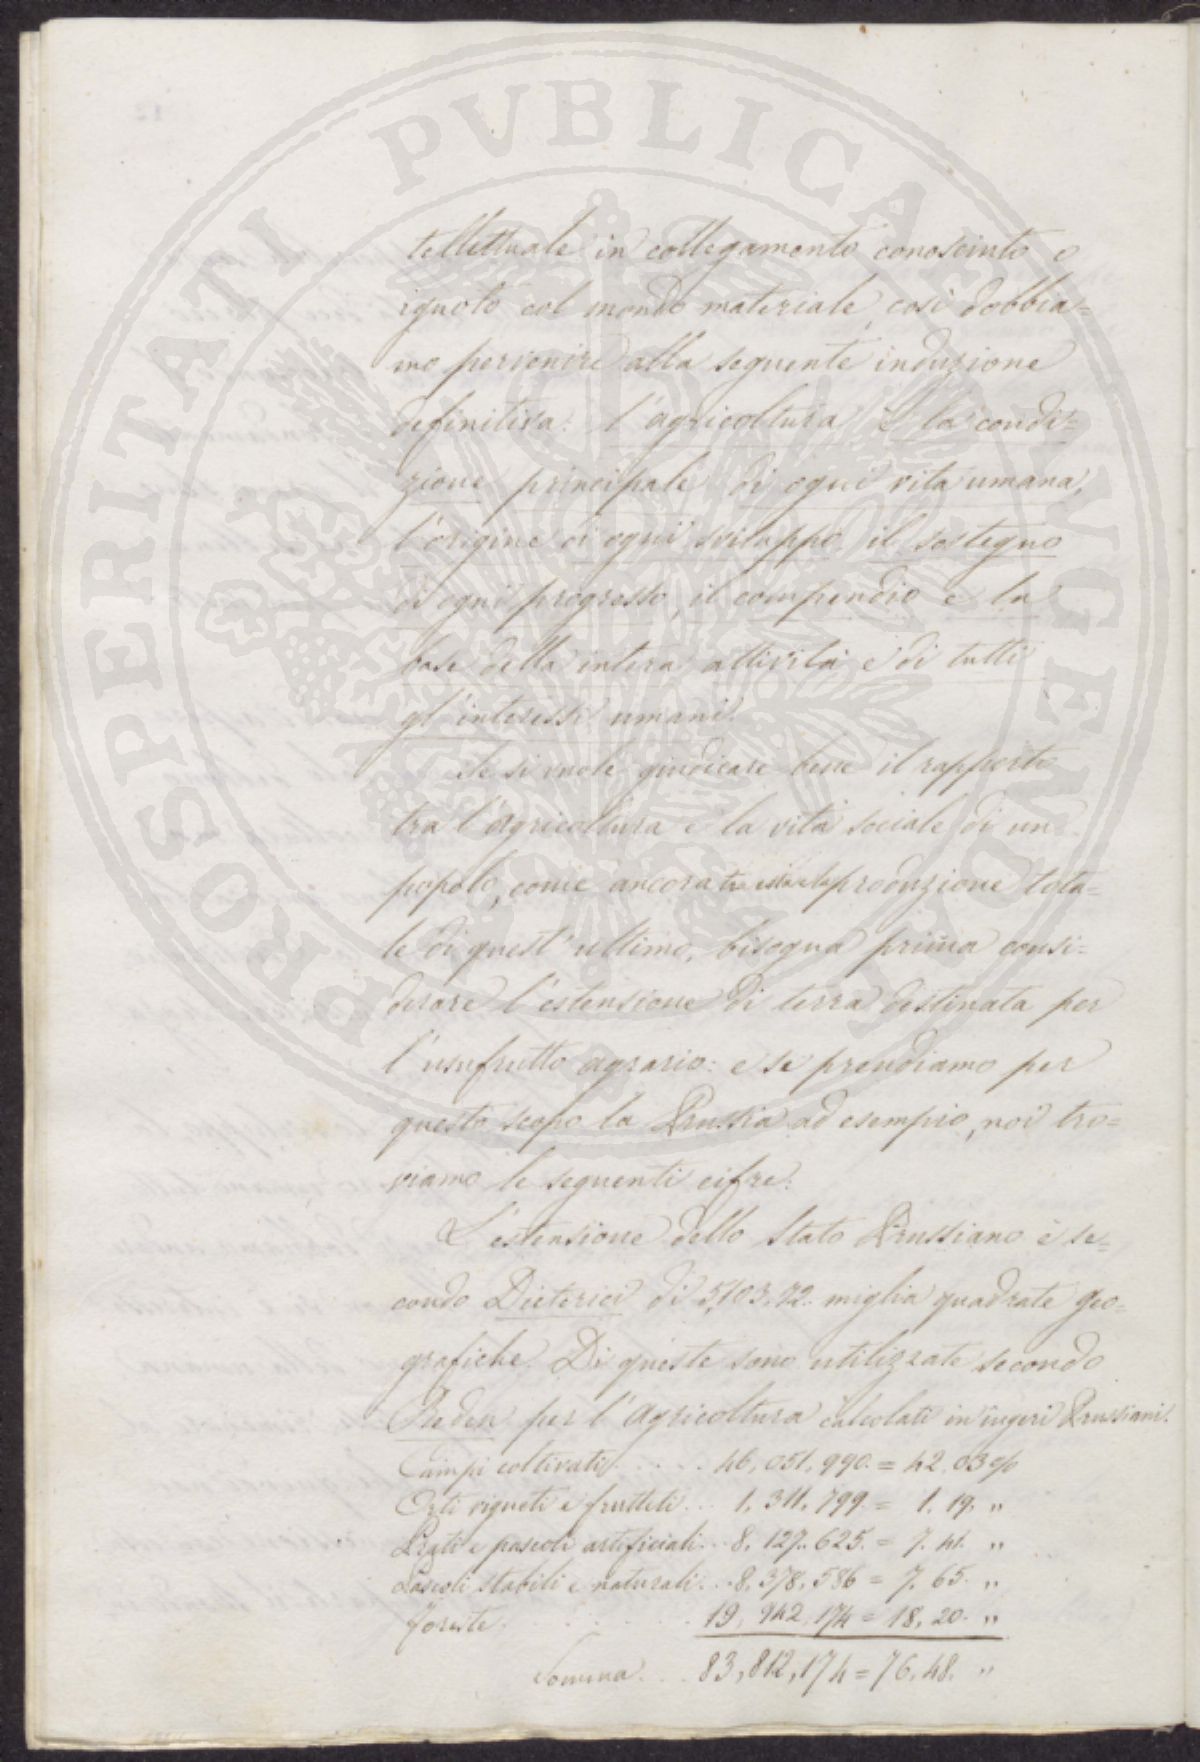 PROSPERITATI PUBLICAE AUGENDAE
tellettuale in collegamento conosciuto o
ignoto col mondo materiale, così dobbia=
mo pervenire alla seguente induzione
definitiva: l'agricoltura è la condi=
zione principale di ogni vita umana,
l'origine di ogni sviluppo, il sostegno
di ogni progresso, il compendio e la
base della intera attività e di tutti
gl'interessi umani.
Se si vuole giudicare bene il rapporto
tra l'agricoltura e la vita sociale di un
popolo, come ancora tra essa e la produzione tota=
le di quest'ultimo, bisogna prima consi=
derare l'estensione di terra destinata per
l'usufrutto agrario: e se prendiamo per
questo scopo la Prussia ad esempio, noi tro=
viamo le seguenti cifre:
L'estensione dello Stato Prussiano è se=
condo Dieterici di 5,103,72. miglia quadrate geo=
grafiche. Di queste sono utilizzate secondo
Reden per l'Agricoltura calcolati in iugeri Prussiani.
Campi coltivati . . . . . 46,051,990. = 42,03 %
Orti vigneti e frutteti . . . 1.311.799. = 1.19. "
Prati e pascoli artificiali . . 8.127.625. = 7.41. "
Pascoli stabili e naturali . . 8,378,586 = 7,65. "
Foreste . . . . . . . 19,942,174 = 18,20. "
Somma . . . 83,812,174 = 76,48. "